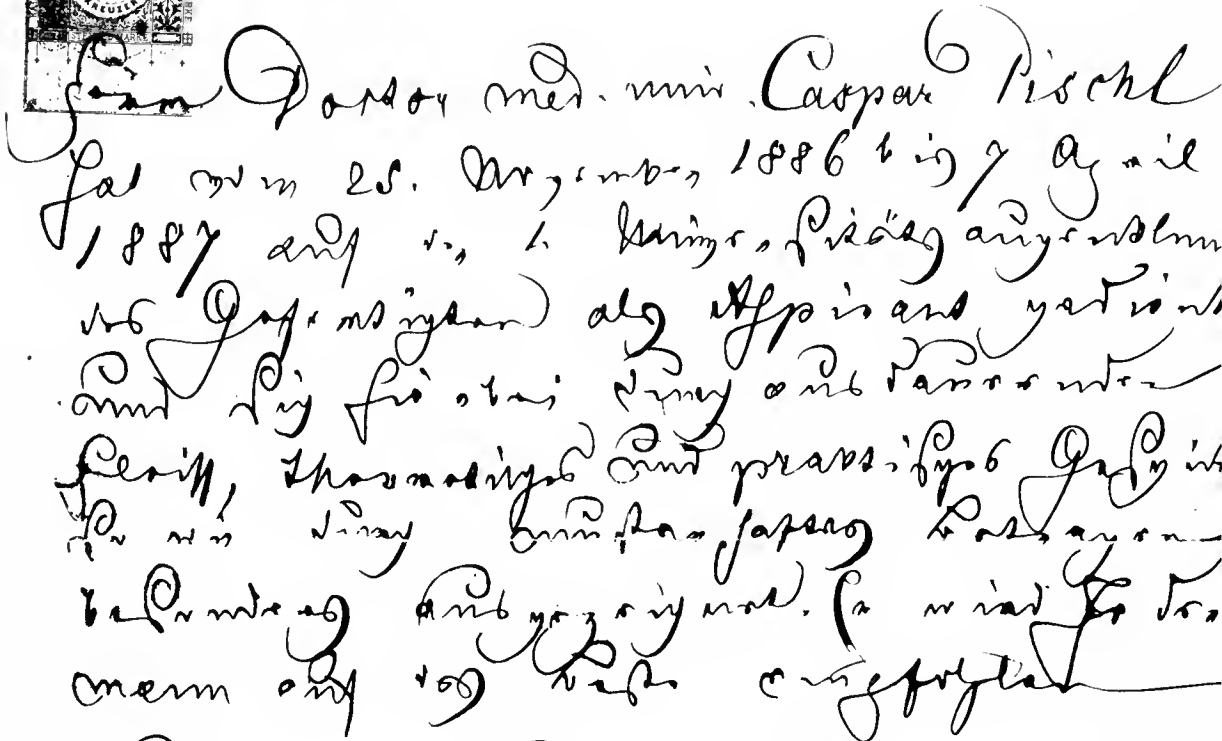 KREUZER
STEMPELMARKE
Herr Doctor med. univ. Caspar Pischl
hat vom 25. November 1886 bis 7 April
1887 auf der I. Universitätsaugenklin
des Gefertigten als Aspirant gedient
und sich hiebei durch ausdauernden
Fleiß, theoretisches und praktisches Geschick
so wie durch musterhaftes Betragen
besonders ausgezeichnet. Er wird Jeder
mann auf das Beste empfohlen